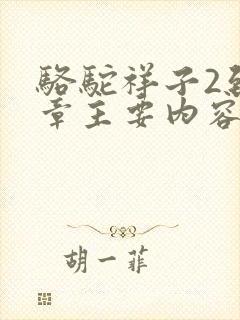 骆驼祥子2到
章主要内容
胡一菲